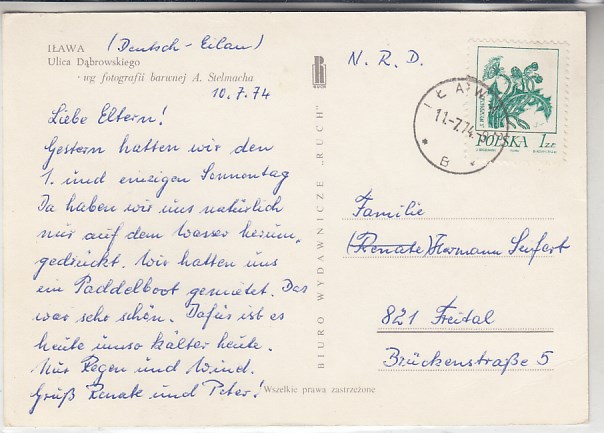 IŁAWA (Deutsch-Eilau)
Ulica Dąbrowskiego
wg fotografii barwnej A. Stelmacha
10.7.74
Liebe Eltern!
Gestern hatten wir den
1. und einzigen Sonnentag
Da haben wir uns natürlich
nur auf dem Wasser herum,
gedrückt. Wir hatten uns
ein Paddelboot gemietet. Das
war sehr schön. Dafür ist es
heute umso kälter heute.
Nur Regen und Wind.
Gruß Renate und Peter!
BIURO WYDAWNICZE „RUCH"
Wszelkie prawa zastrzeżone
N. R. D.
IŁAWA
11.-7.74
B
POLSKA 1 ZŁ
Familie
(Renate) Hermann Seifert
821 Freital
Brückenstraße 5